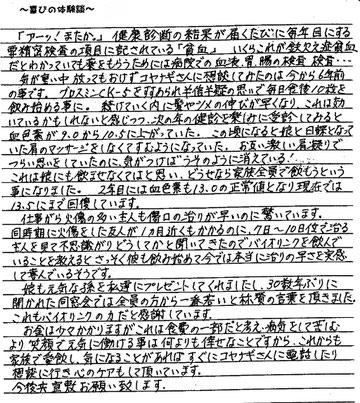 〜喜びの体験談〜
「アーッ!またか。」健康診断の結果が届くたびに毎年目にする
要精密検査の項目に記されている「貧血」 いくらこれが鉄欠乏性貧血
だとわかっていても薬をもらうためには病院での血液、胃、腸の検査 検査…
気が重い中 放ってもおけずコヤナギさんに相談してみたのは今から6年前
の事です。プロスミンK-5をすすめられ半信半疑の思いで毎日食後10粒を
飲み始める事に。続けていく内に髪やツメの伸びが早くなり、これは効
いているかもしれないと感じつつ、次の年の健診を楽しみに受診してみると
血色素が9.0から10.5に上がっていた。この頃になると娘と日課となって
いた肩のマッサージをしなくてすむようになっていた。お互い激しい肩凝りで
つらい思いをしていたのに、気がつけばうそのように消えている!
これは娘にも飲ませなくてはと思い、どうせなら家族全員で飲もうという
事になりました。2年目には血色素も13.0の正常値となり現在では
13.5にまで回復しています。
仕事がら火傷の多い主人も傷口の治りが早いのに驚いています。
同時期に火傷をした友人が1ヵ月近くもかかるのに、7日〜10日位で治る
主人を見て不思議がりどうしてかと聞いてきたのでバイオリンクを飲んで
いることを教えるとさっそく彼も飲み始めて今では本当に治りの早さを実感
して喜んでいるそうです。
娘も元気な孫を私達にプレゼントしてくれましたし、30数年ぶりに
開かれた同窓会では全員の方から一番若いと称賛の言葉を頂きました。
これもバイオリンクの力だと感謝しています。
お金は少々かかりますがこれは食費の一部だと考え、病気をして苦しむ
より笑顔で元気に働ける事は何よりも倖せなことですから、これからも
家族で愛飲し、気になることがあればすぐにコヤナギさんに電話したり
相談に行き心のケアもして頂いています。
今後共宜敷お願い致します。